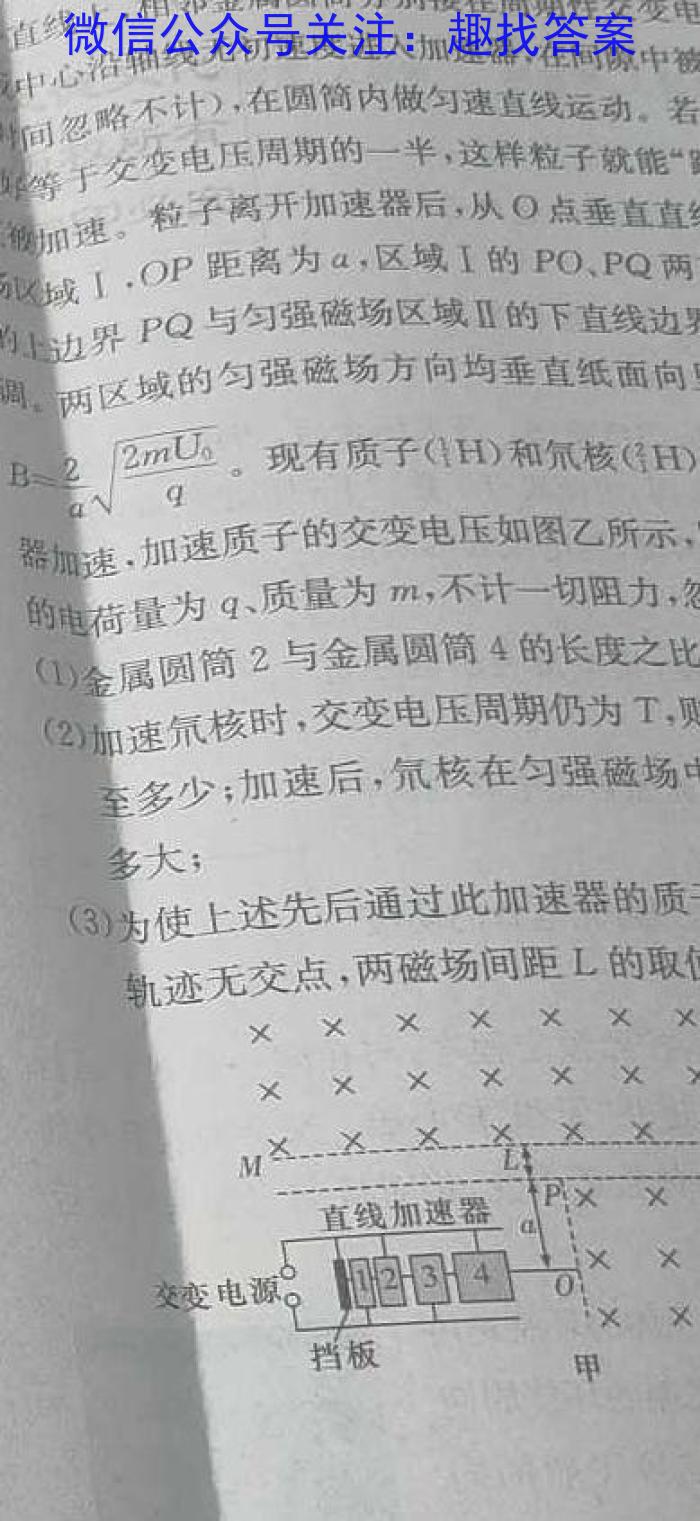 微信公众号关注：趣找答案
中心沿轴线无初速度进入加速器，在间隙中被
间忽略不计），在圆筒内做匀速直线运动。若
等于交变电压周期的一半，这样粒子就能“
被加速。粒子离开加速器后，从O点垂直直
区域Ⅰ，OP距离为a，区域Ⅰ的PO、PQ两
的上边界PQ与匀强磁场区域Ⅱ的下直线边界
调。两区域的匀强磁场方向均垂直纸面向
B=2/a√(2mU₀/q)。现有质子(¹₁H)和氘核(²₁H)
器加速，加速质子的交变电压如图乙所示，
的电荷量为q、质量为m，不计一切阻力，忽
(1)金属圆筒2与金属圆筒4的长度之比
(2)加速氘核时，交变电压周期仍为T，则
至多少；加速后，氘核在匀强磁场中
多大；
(3)为使上述先后通过此加速器的质子
轨迹无交点，两磁场间距L的取值
M
L
P
直线加速器
a
1 2 3 4
O
交变电源
挡板
甲